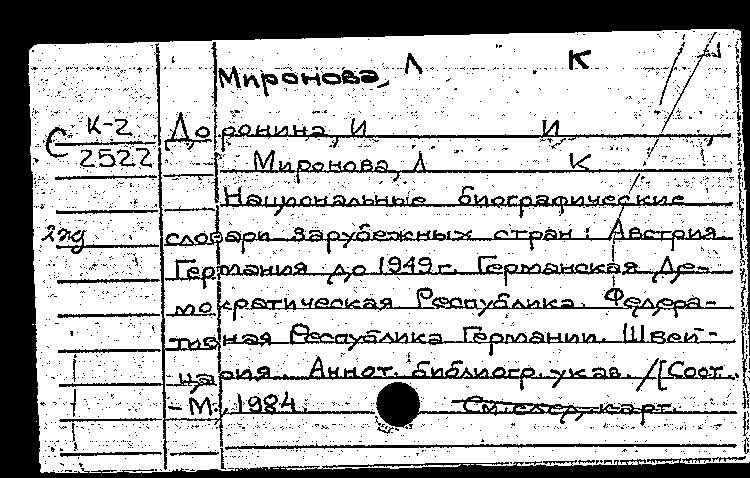 Миронова, Л К
С К-2
2522
Доронина, И И
Миронова, Л К
Национальные биографические
2 жд
словари зарубежных стран: Австрия
Германия до 1949 г. Германская Де-
мократическая Республика. Федера-
тивная Республика Германии. Швей-
цария. Аннот. библиогр. указ. /[Сост.
- М., 1984.
См. след. карт.